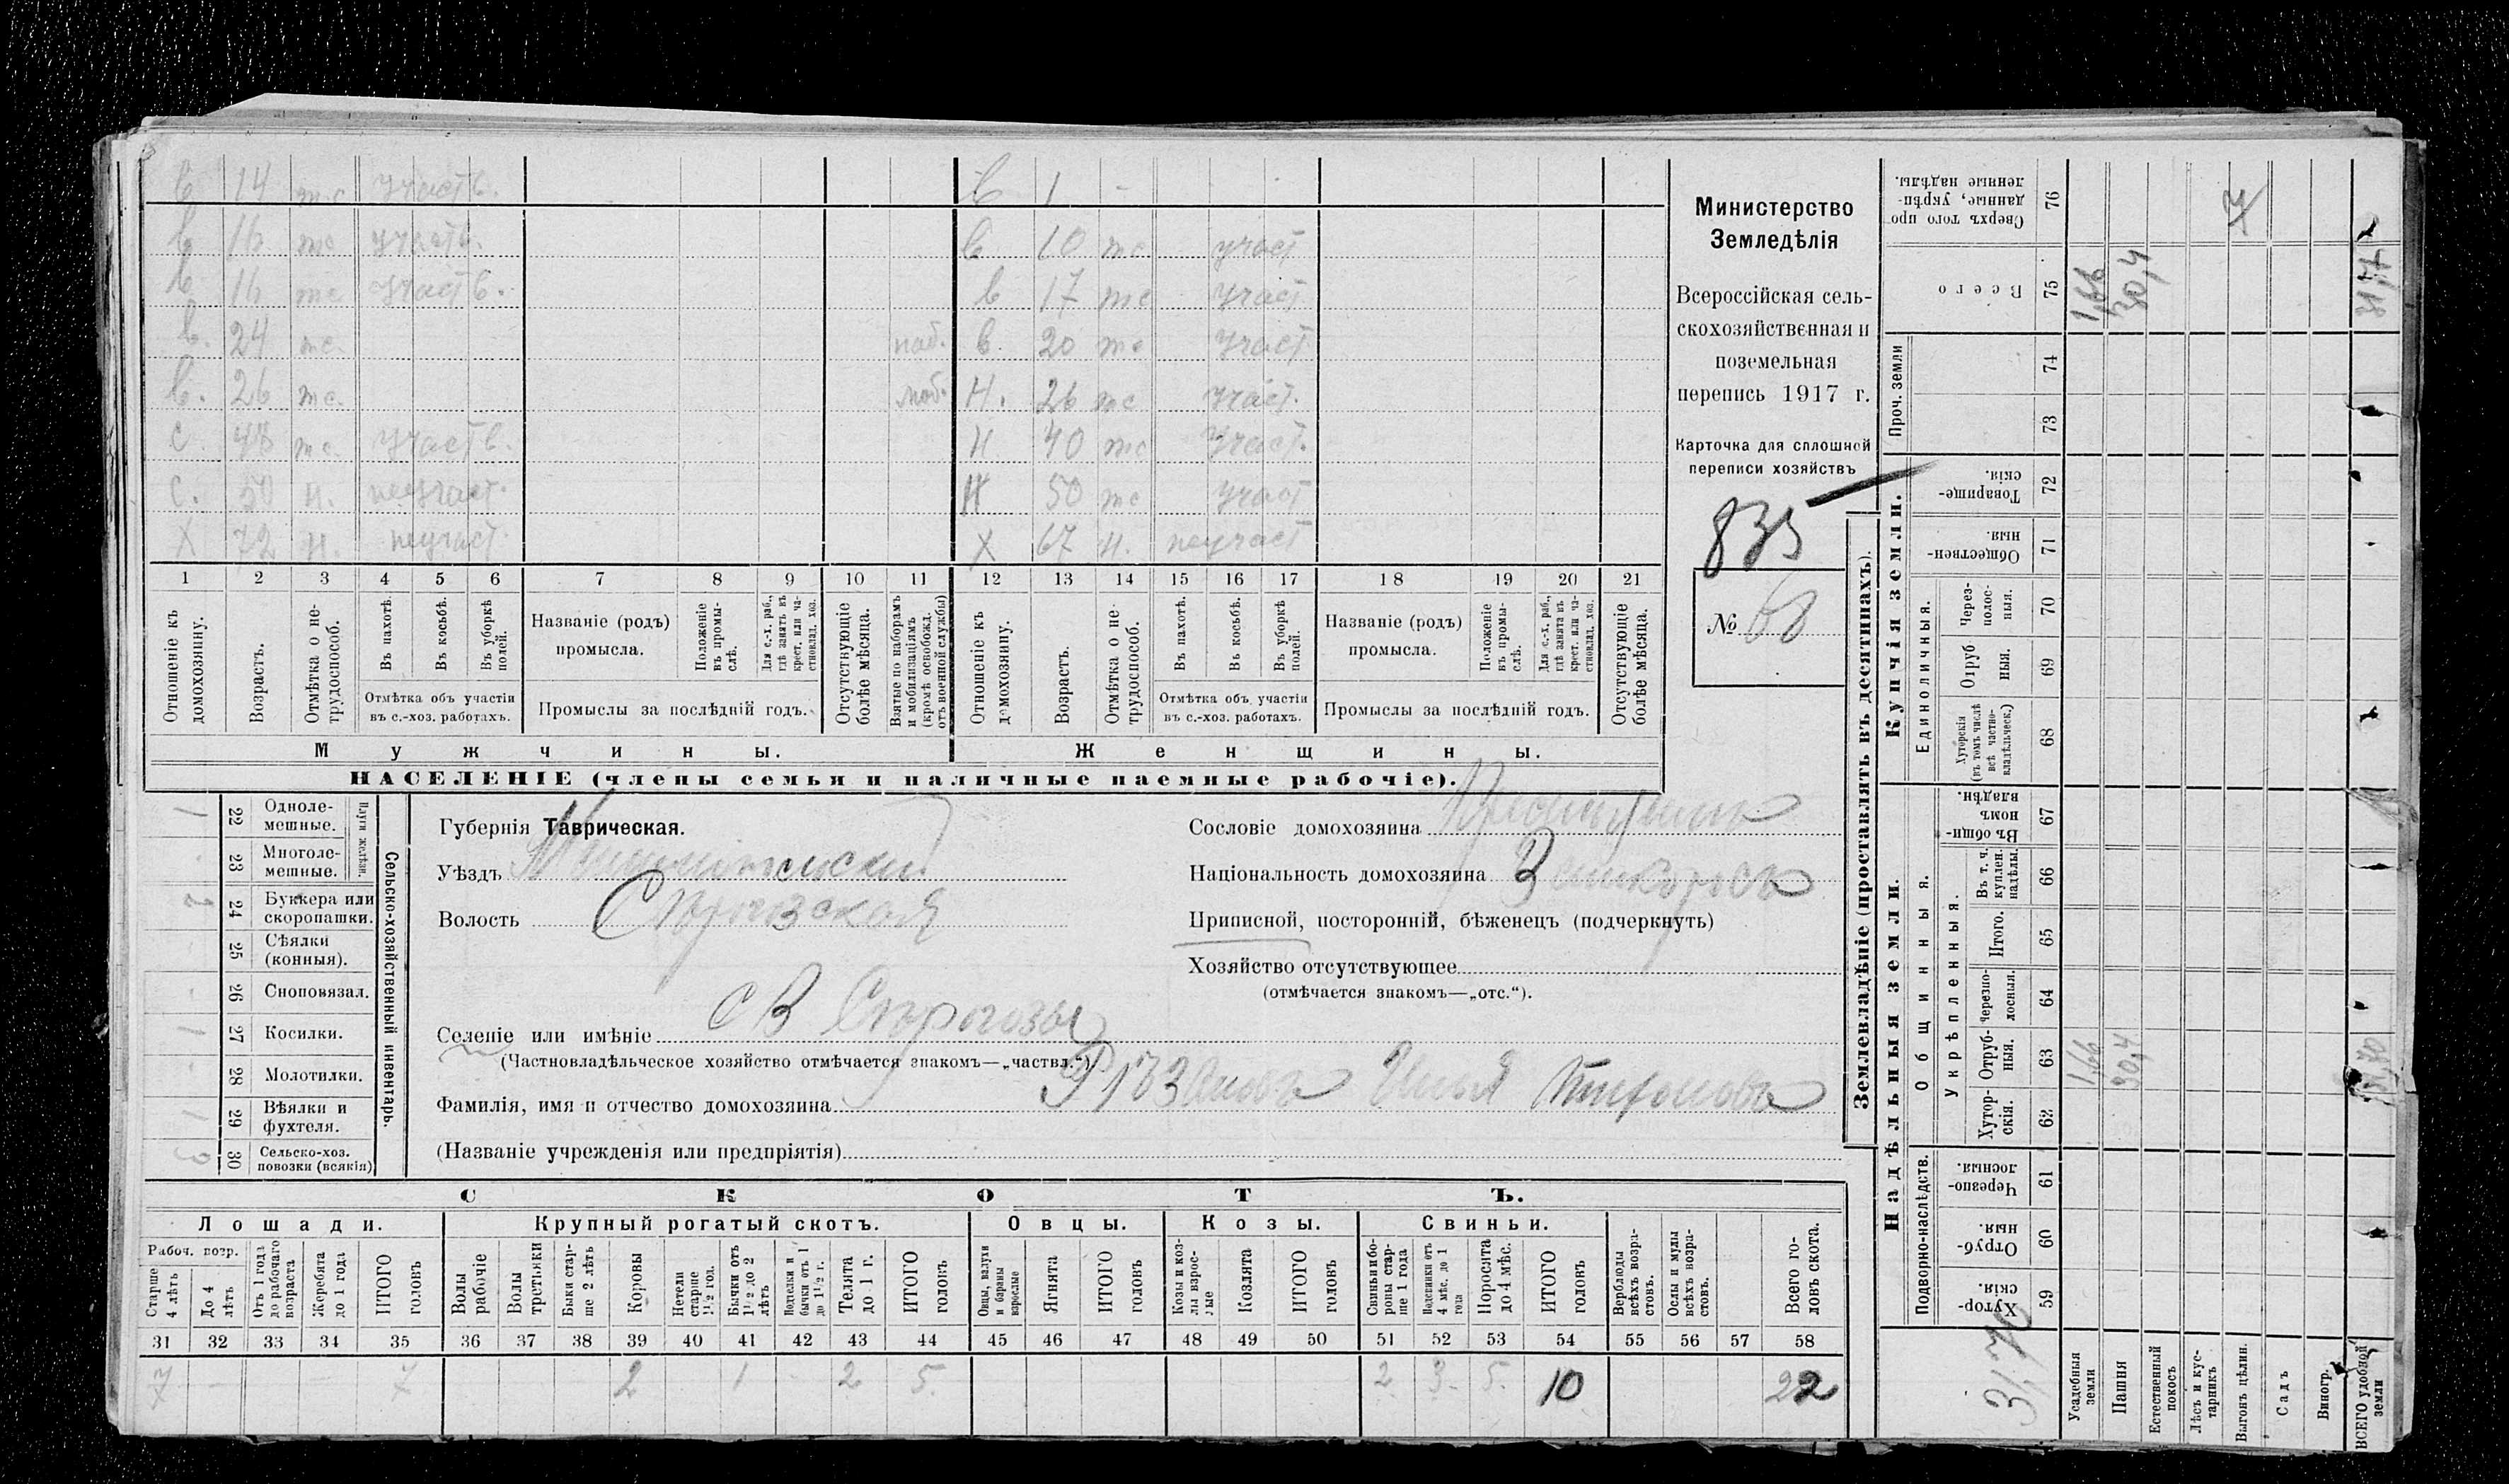 в 14 тс участв. в 1 -
в 16 тс участв. в 10 тс участ
в 16 тс участв. в 17 тс участ
в. 24 тс. в. 20 тс участ
в. 26 тс. моб. Н. 26 тс участ.
с. тс. участв. Н 40 тс участ.
с. 50 н. неучаст. Н 50 тс участ
Х 72 н. неучаст. Х 67 н. неучаст
1 2 3 4 5 6 7 8 9 10 11 12 13 14 15 16 17 18 19 20 21
Отношеніе къ домохозяину.
Возрастъ.
Отмѣтка о нетрудоспособ.
Въ пахотѣ.
Въ косьбѣ.
Въ уборкѣ полей.
Отмѣтка объ участіи
въ с.-хоз. работахъ.
Названіе (родъ)
промысла.
Положеніе въ промыслѣ.
Для с.-х. раб., гдѣ занятъ въ крест. или частновлад. хоз.
Промыслы за послѣдній годъ.
Отсутствующіе болѣе мѣсяца.
Взятые по наборамъ и мобилизаціямъ (кромѣ освобожд. отъ военной службы)
Отношеніе къ домохозяину.
Возрастъ.
Отмѣтка о нетрудоспособ.
Въ пахотѣ.
Въ косьбѣ.
Въ уборкѣ полей.
Отмѣтка объ участіи
въ с.-хоз. работахъ.
Названіе (родъ)
промысла.
Положеніе въ промыслѣ.
Для с.-х. раб., гдѣ занята въ крест. или частновлад. хоз.
Промыслы за послѣдній годъ.
Отсутствующіе болѣе мѣсяца.
Мужчины.
Женщины.
НАСЕЛЕНІЕ (члены семьи и наличные наемные рабочіе).
Министерство
Земледѣлія
Всероссійская сель-
скохозяйственная и
поземельная
перепись 1917 г.
Карточка для сплошной
переписи хозяйствъ
835
№ 68
1 22 Одноле-
мешные.
23 Многоле-
мешные.
Плуги желѣзн.
2 24 Буккера или
скоропашки.
25 Сѣялки
(конныя).
26 Сноповязал.
1 27 Косилки.
28 Молотилки.
1 29 Вѣялки и
фухтеля.
3 30 Сельско-хоз.
повозки (всякія)
Сельско-хозяйственный инвентарь.
Губернія Таврическая.
Уѣздъ Мелитопольскій
Волость
Селеніе или имѣніе
(Частновладѣльческое хозяйство отмѣчается знакомъ—„частвл.“)
Фамилія, имя и отчество домохозяина Илья
(Названіе учрежденія или предпріятія)
Сословіе домохозяина Крестьянинъ
Національность домохозяина
Приписной, посторонній, бѣженецъ (подчеркнуть)
Хозяйство отсутствующее
(отмѣчается знакомъ—„отс.“).
СКОТЪ.
Лошади. Крупный рогатый скотъ. Овцы. Козы. Свиньи.
Рабоч. возр.
Старше 4 лѣтъ
До 4 лѣтъ
Отъ 1 года до рабочаго возраста
Жеребята до 1 года
ИТОГО головъ
Волы рабочіе
Волы третьяки
Быки старше 2 лѣтъ
Коровы
Нетели старше 1½ год.
Бычки отъ 1½ до 2 лѣтъ
Подтелки и бычки отъ 1 до 1½ г.
Телята до 1 г.
ИТОГО головъ
Овцы, валухи и бараны взрослые
Ягнята
ИТОГО головъ
Козы и козлы взрослые
Козлята
ИТОГО головъ
Свиньи и боровы старше 1 года
Подсвинки отъ 4 мѣс. до 1 года
Поросята до 4 мѣс.
ИТОГО головъ
Верблюды всѣхъ возрастовъ.
Ослы и мулы всѣхъ возрастовъ.
Всего головъ скота.
31 32 33 34 35 36 37 38 39 40 41 42 43 44 45 46 47 48 49 50 51 52 53 54 55 56 57 58
7 - 7 2 1 - 2 5. 2 3. 5. 10 22
Землевладѣніе (проставлять въ десятинахъ).
Надѣльныя земли.
Купчія земли.
Проч. земли
Подворно-наслѣдств.
Общинныя.
Укрѣпленныя.
Единоличныя.
Хуторскія. 59
Отрубныя. 60
Черезполосныя. 61
Хуторскія. 62
Отрубныя. 63 1,66 30,4 31,70
Черезполосныя. 64
Итого. 65
Въ т. ч. куплен. надѣлы. 66
Въ общинномъ владѣн. 67
Хуторскія (въ томъ числѣ всѣ частновладѣльческ.) 68
Отрубныя. 69
Черезполосныя. 70
Общественныя. 71
Товарищескія. 72
73
74
Всего 75 1,66 30,4
Сверхъ того проданные, укрѣпленные надѣлы. 76
31,70
Усадебныя земли
Пашня
Естественный покосъ
Лѣсъ и кустарникъ
Выгонъ цѣлин.
Садъ
Виногр.
ВСЕГО удобной земли